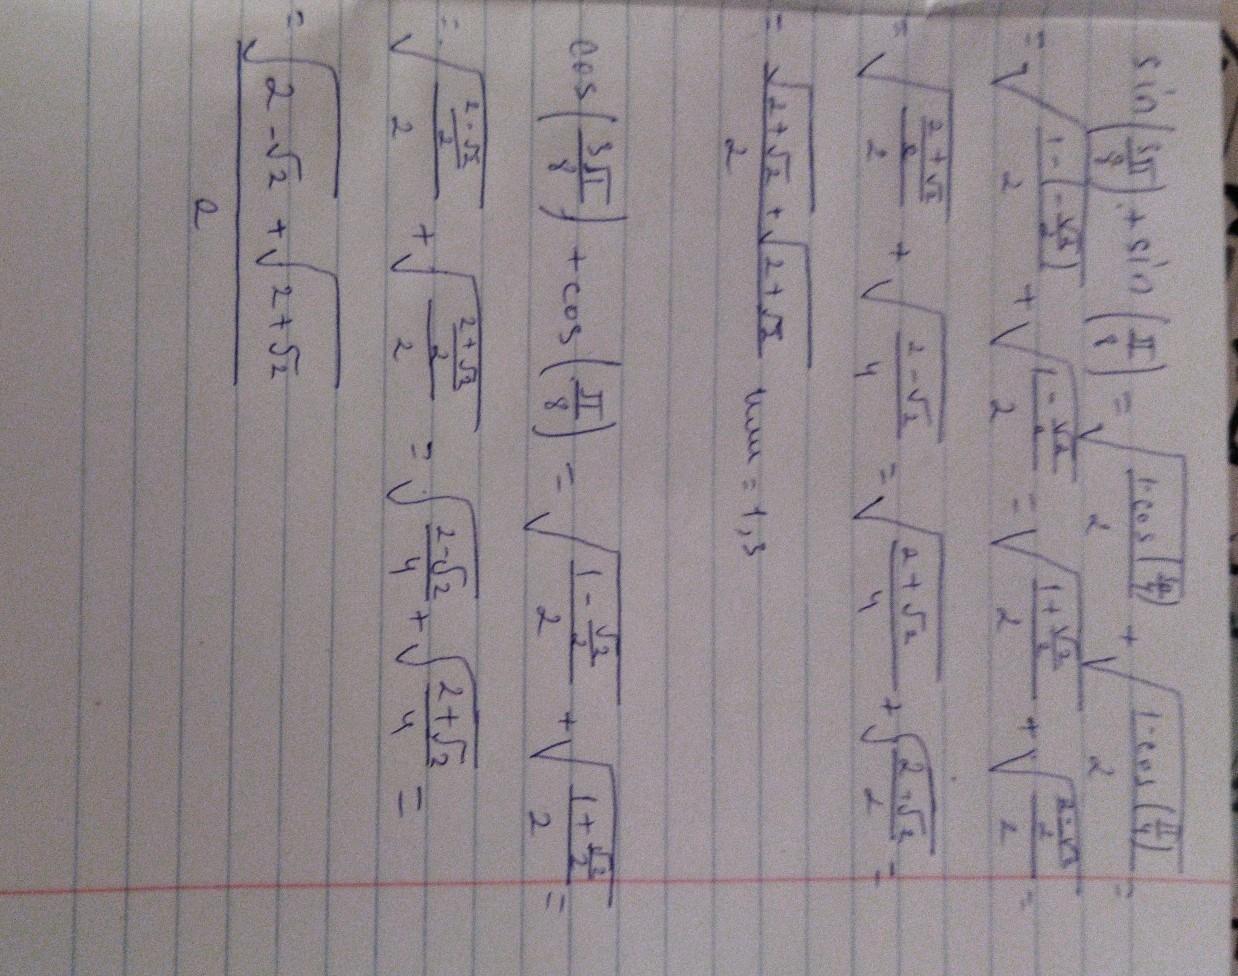 sin(3π/8) + sin(π/8) = √((1-cos(3π/4))/2) + √((1-cos(π/4))/2) =
= √((1-(-√2/2))/2) + √((1-√2/2)/2) = √((1+√2/2)/2) + √(((2-√2)/2)/2) =
= √(((2+√2)/2)/2) + √((2-√2)/4) = √((2+√2)/4) + √((2+√2)/2) =
= (√(2+√2) + √(2+√2))/2 или = 1,3
cos(3π/8) + cos(π/8) = √((1-√2/2)/2) + √((1+√2/2)/2) =
= √(((2-√2)/2)/2) + √(((2+√2)/2)/2) = √((2-√2)/4) + √((2+√2)/4) =
= (√(2-√2) + √(2+√2))/2